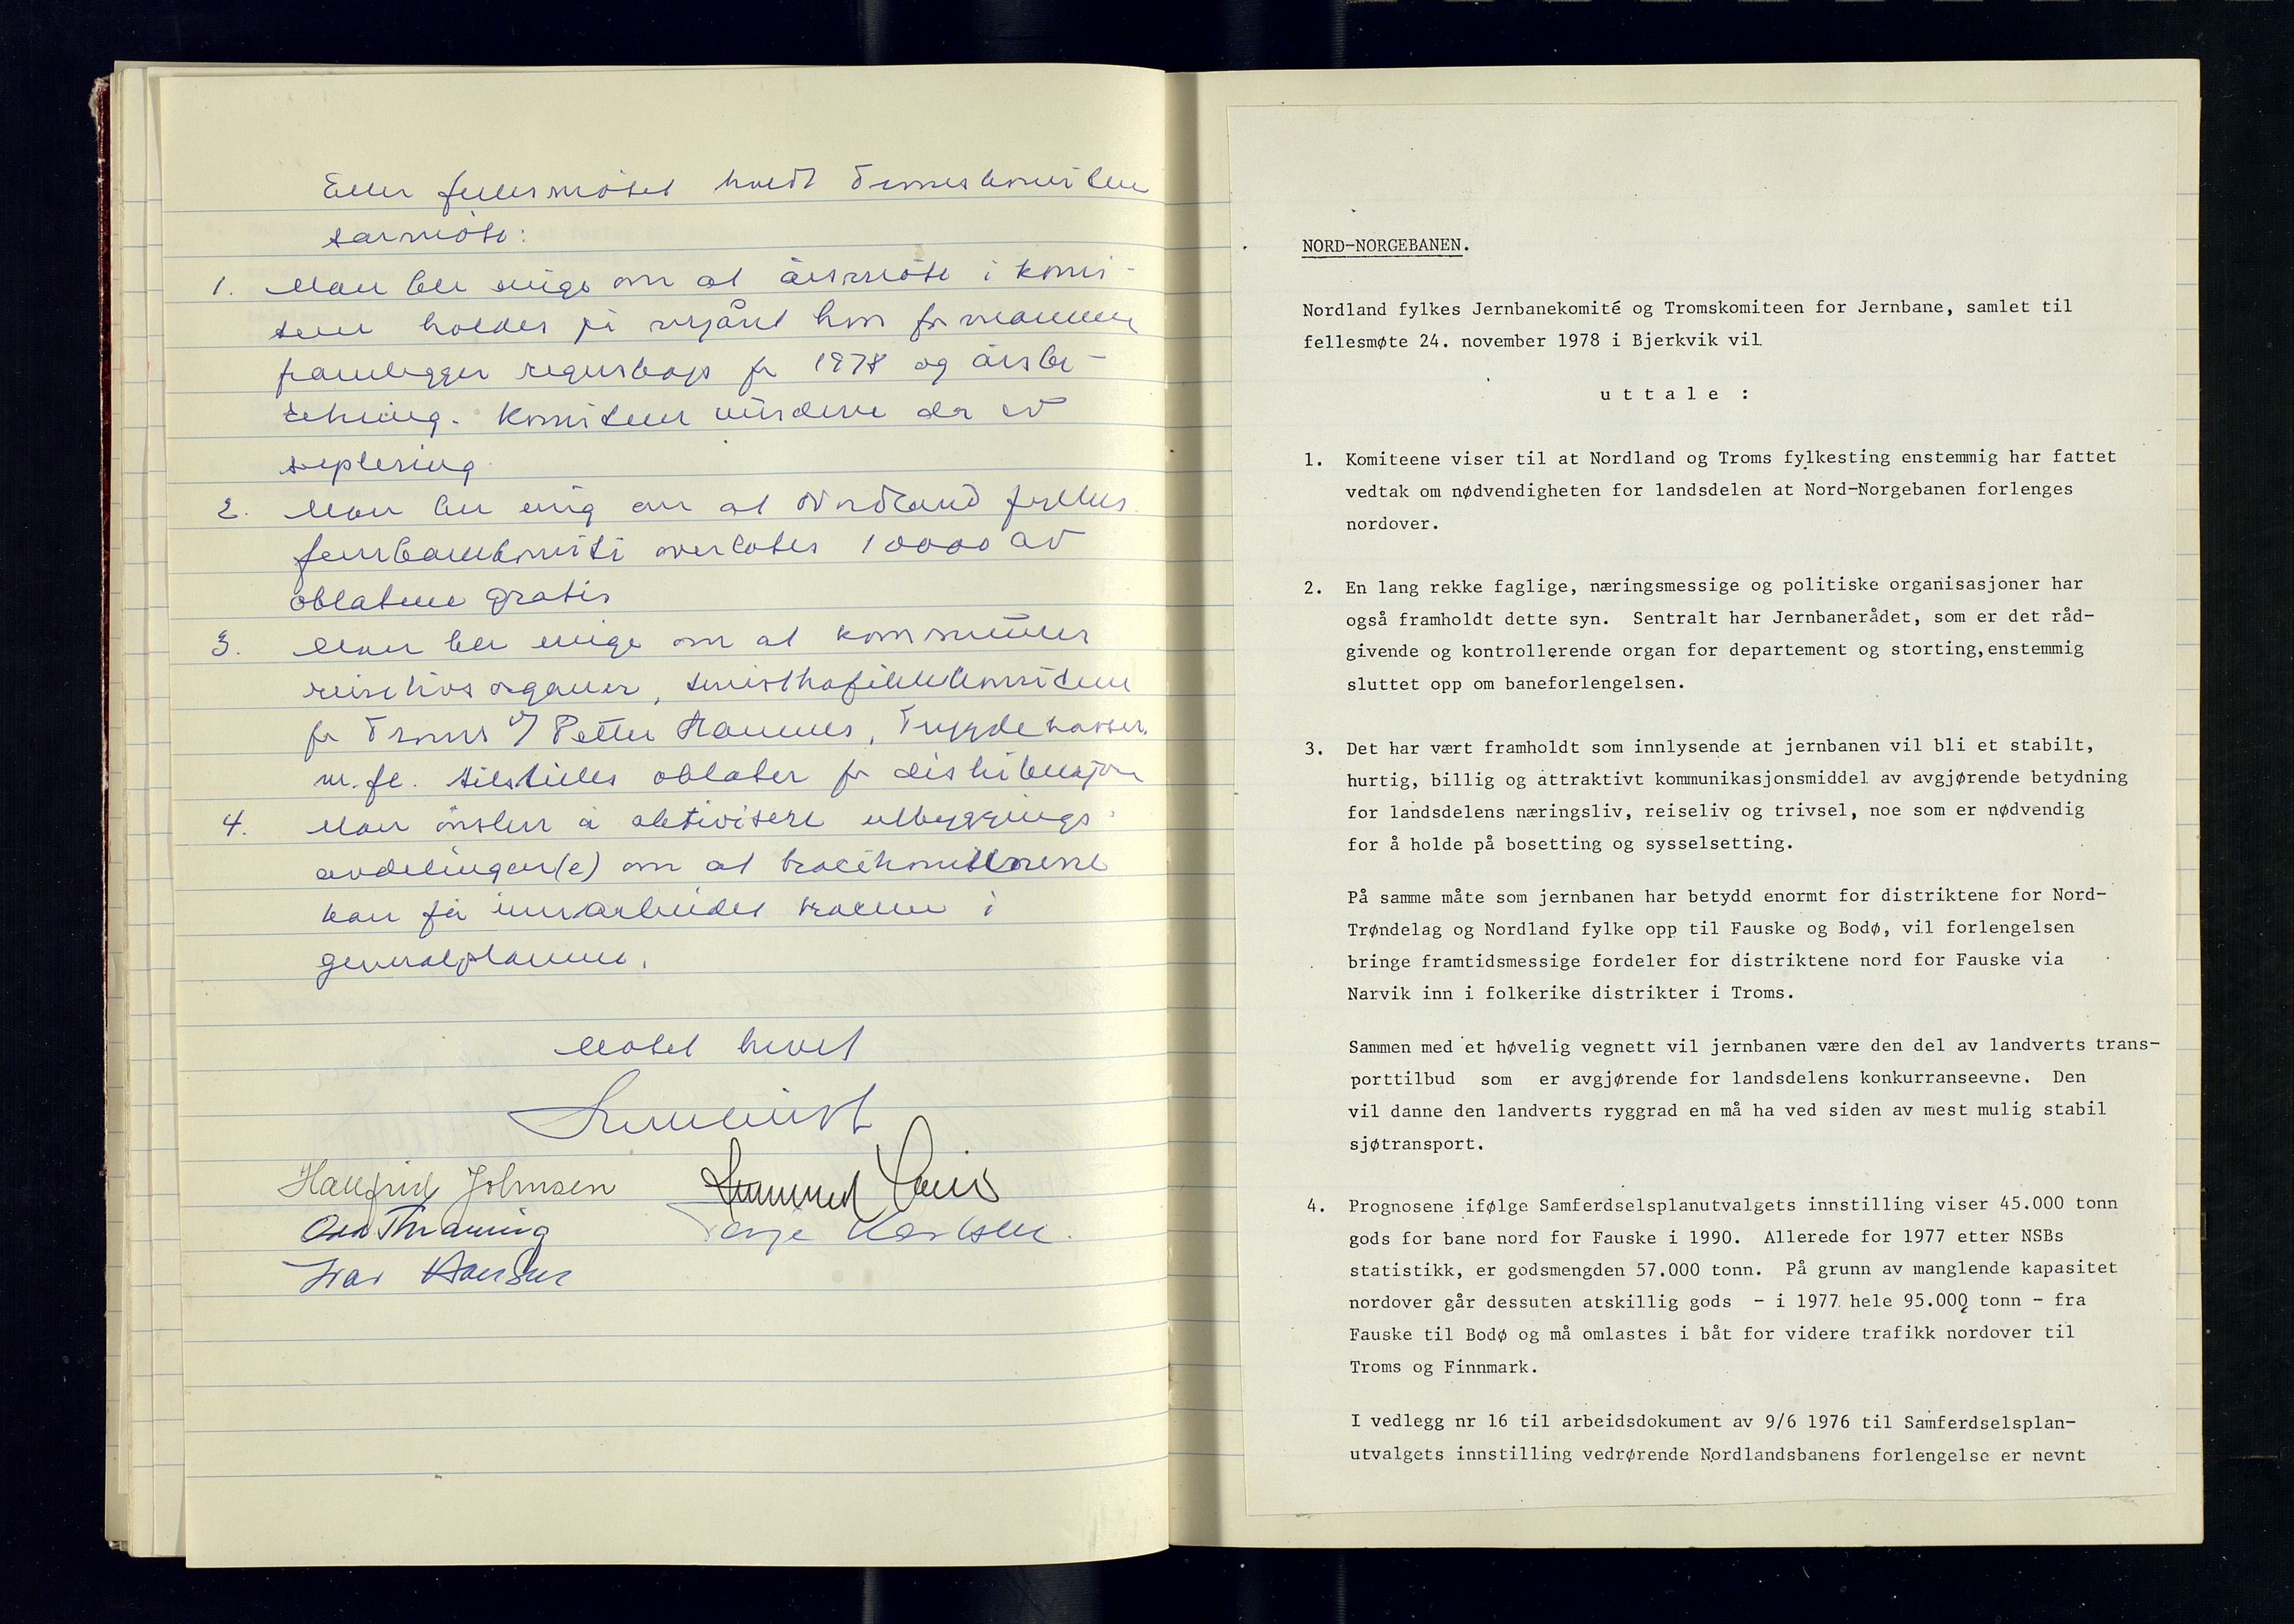 Etter fellesmøtet holdt Tromskomiteen
særmøte:
1. Man ble enige om at årsmøte i komi-
teen holdes på nyåret hvor formannen
framlegger regnskap for 1978 og årsbe-
retning. Komiteen vurderer da ev
supplering
2. Man ble enig om at Nordland fylkes
jernbanekomité overlates 10000 av
oblatene gratis
3. Man ble enige om at kommuner
reiselivsorganer, turisttrafikkkomiteen
for Troms v/ Petter Hannes, Trygdekasser
m.fl. tilstilles oblater for distribusjon
4. Man ønsker å aktivisere utbyggings-
avdelingen(e) om at
kan få innarbeidet traseen i
generalplanene.
Møtet hevet
Hallfrid Johnsen
Terje Karlsen.
Ivar
NORD-NORGEBANEN.
Nordland fylkes Jernbanekomité og Tromskomiteen for Jernbane, samlet til
fellesmøte 24. november 1978 i Bjerkvik vil
u t t a l e :
1. Komiteene viser til at Nordland og Troms fylkesting enstemmig har fattet
vedtak om nødvendigheten for landsdelen at Nord-Norgebanen forlenges
nordover.
2. En lang rekke faglige, næringsmessige og politiske organisasjoner har
også framholdt dette syn. Sentralt har Jernbanerådet, som er det råd-
givende og kontrollerende organ for departement og storting,enstemmig
sluttet opp om baneforlengelsen.
3. Det har vært framholdt som innlysende at jernbanen vil bli et stabilt,
hurtig, billig og attraktivt kommunikasjonsmiddel av avgjørende betydning
for landsdelens næringsliv, reiseliv og trivsel, noe som er nødvendig
for å holde på bosetting og sysselsetting.
På samme måte som jernbanen har betydd enormt for distriktene for Nord-
Trøndelag og Nordland fylke opp til Fauske og Bodø, vil forlengelsen
bringe framtidsmessige fordeler for distriktene nord for Fauske via
Narvik inn i folkerike distrikter i Troms.
Sammen med et høvelig vegnett vil jernbanen være den del av landverts trans-
porttilbud som er avgjørende for landsdelens konkurranseevne. Den
vil danne den landverts ryggrad en må ha ved siden av mest mulig stabil
sjøtransport.
4. Prognosene ifølge Samferdselsplanutvalgets innstilling viser 45.000 tonn
gods for bane nord for Fauske i 1990. Allerede for 1977 etter NSBs
statistikk, er godsmengden 57.000 tonn. På grunn av manglende kapasitet
nordover går dessuten atskillig gods - i 1977 hele 95.000 tonn - fra
Fauske til Bodø og må omlastes i båt for videre trafikk nordover til
Troms og Finnmark.
I vedlegg nr 16 til arbeidsdokument av 9/6 1976 til Samferdselsplan-
utvalgets innstilling vedrørende Nordlandsbanens forlengelse er nevnt